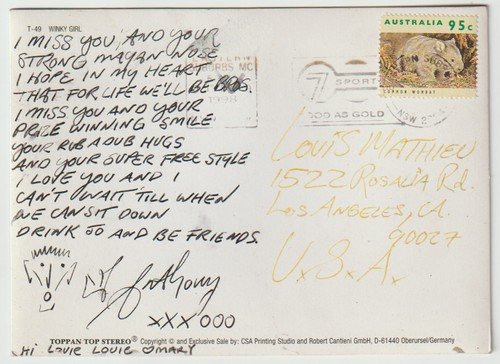 T-49 WINKY GIRL
I MISS YOU, AND YOUR
STRONG MAYAN NOSE
I HOPE IN MY HEART
THAT FOR LIFE WE'LL BE BROS.
I MISS YOU AND YOUR
PRIZE WINNING SMILE
YOUR RUB A DUB HUGS
AND YOUR SUPER FREE STYLE
I LOVE YOU AND I
CAN'T WAIT TILL WHEN
WE CAN SIT DOWN
DRINK JO AND BE FRIENDS.
Anthony
XXX OOO
Hi LOUIE LOUIE
AUSTRALIA 95c
COMMON WOMBAT
MC
1998
7 SPORT
GOOD AS GOLD
NSW
LOUIS MATHIEU
1522 ROSALIA Rd.
LOS ANGELES, CA.
90027
U.S.A.
TOPPAN TOP STEREO® Copyright © and Exclusive Sale by: CSA Printing Studio and Robert Cantieni GmbH, D-61440 Oberursel/Germany